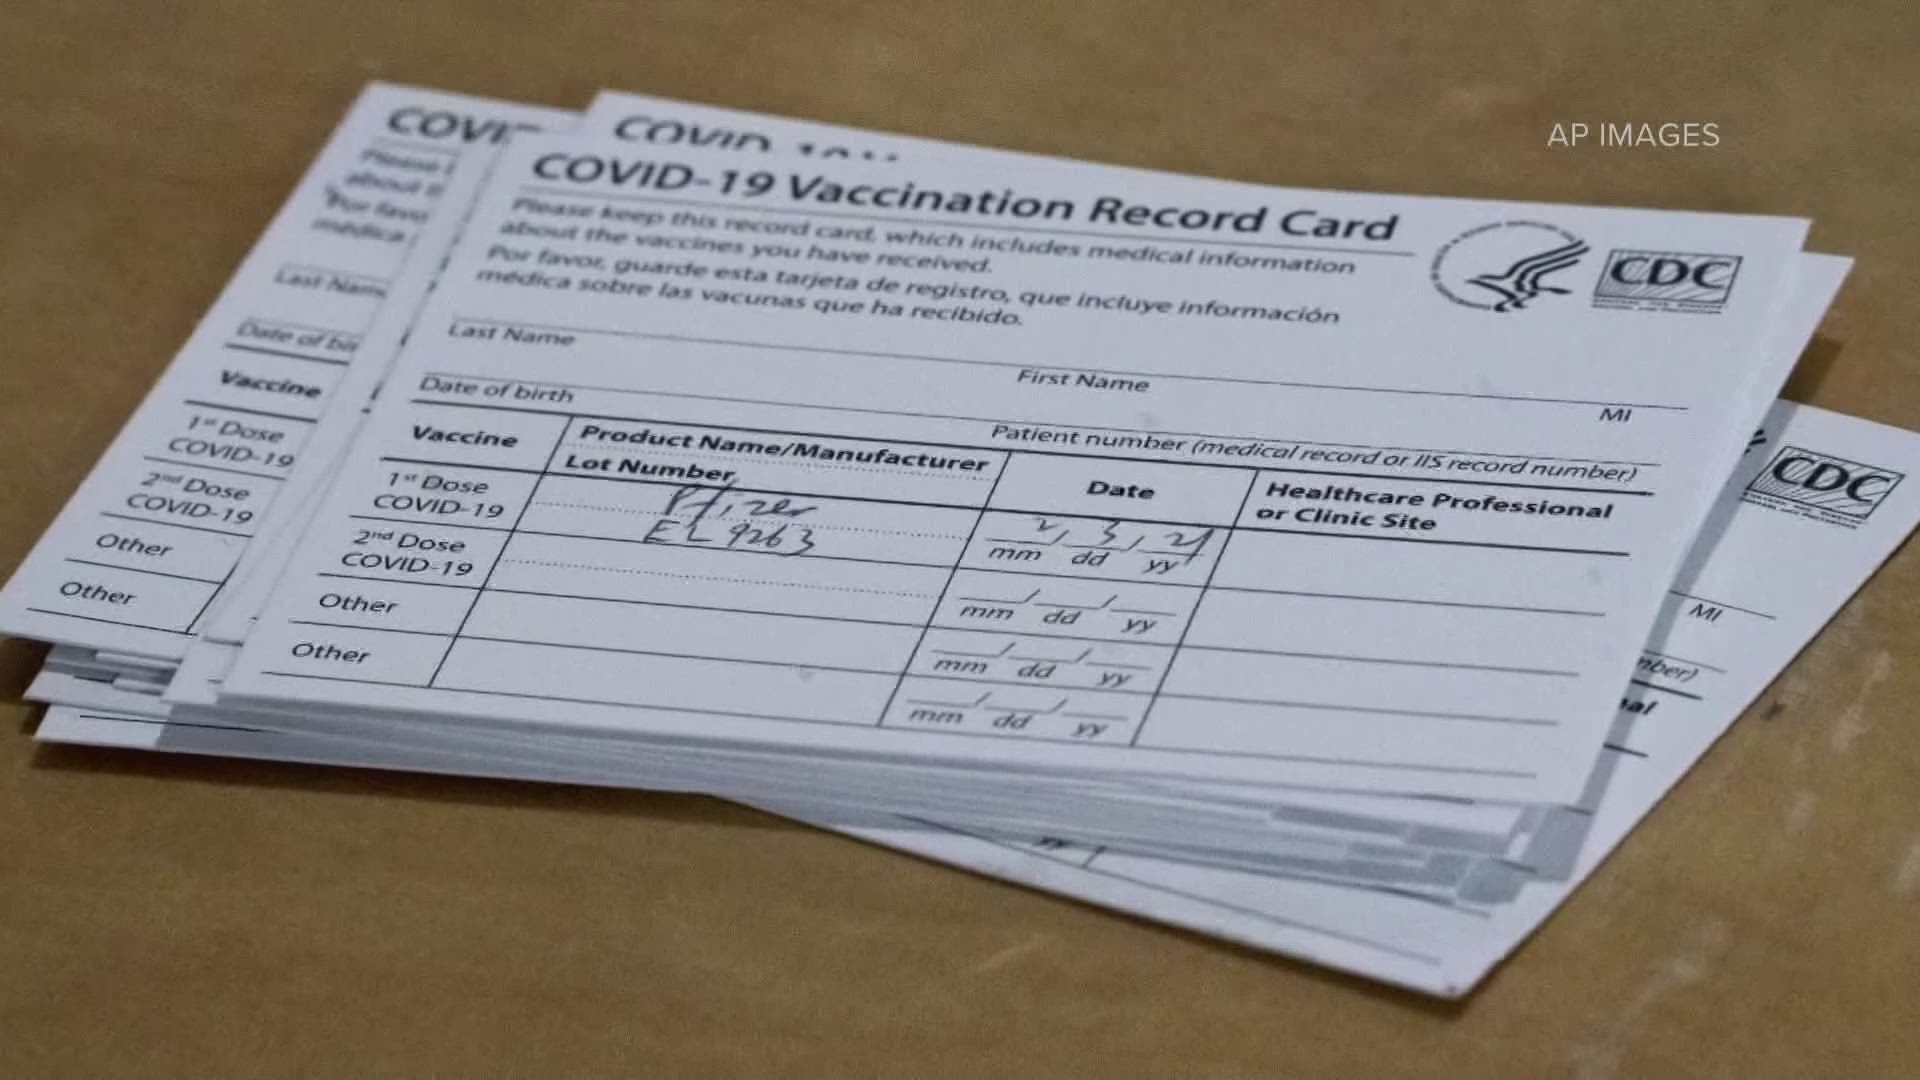 AP IMAGES
COVID-19 Vaccination Record Card
Please keep this record card, which includes medical information
about the vaccines you have received.
Por favor, guarde esta tarjeta de registro, que incluye información
médica sobre las vacunas que ha recibido.
CDC
Last Name First Name MI
Date of birth Patient number (medical record or IIS record number)
Vaccine
Product Name/Manufacturer
Lot Number
Date
Healthcare Professional
or Clinic Site
1st Dose
COVID-19
Pfizer
EL9263
2, 3, 21
mm dd yy
2nd Dose
COVID-19
mm dd yy
Other
mm dd yy
Other
mm dd yy
Please
about
Por favo
médica
Last Name
Date of bir
Vaccine
1st Dose
COVID-19
2nd Dose
COVID-19
Other
Other
COVID
CDC
MI
nber)